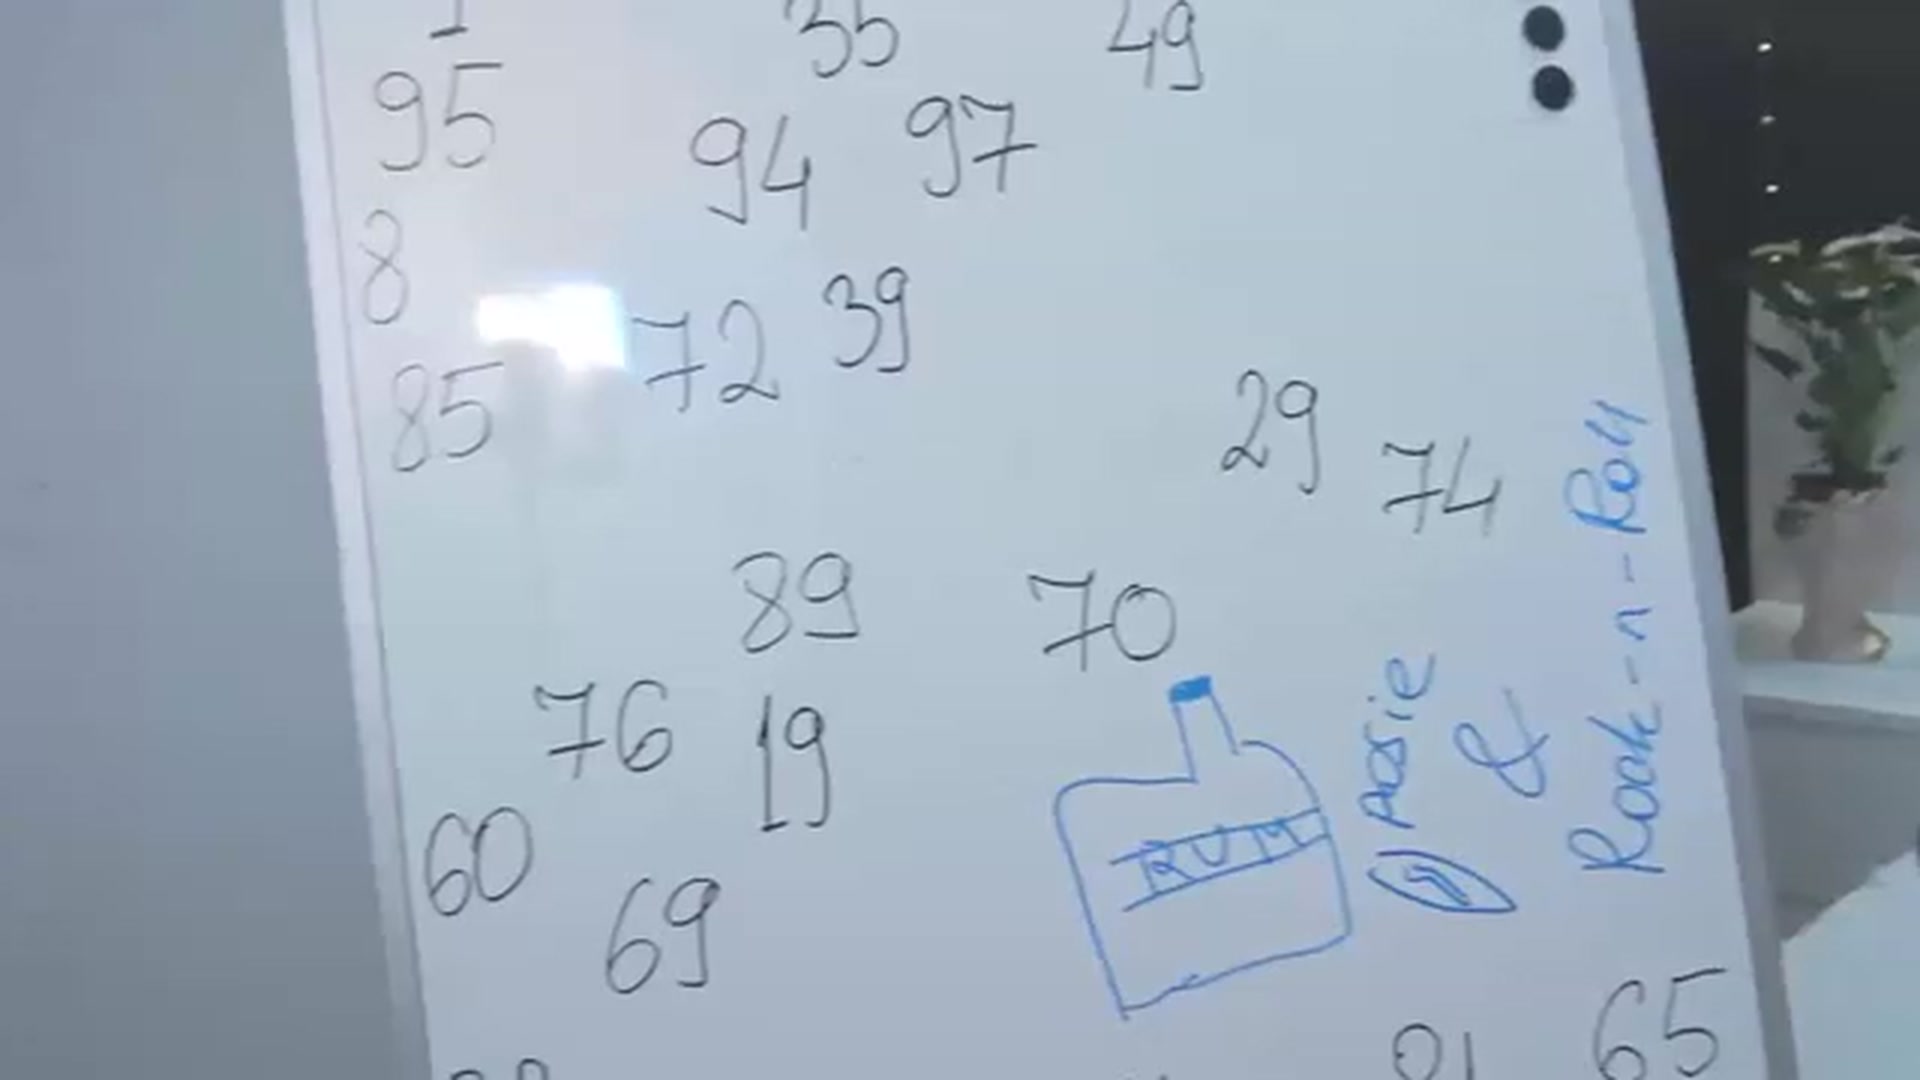 35 49
95
94 97
8
72 39
85
29 74
89 70
76 19
60
69
RUM
Posie
&
Rock-n-Roll
65